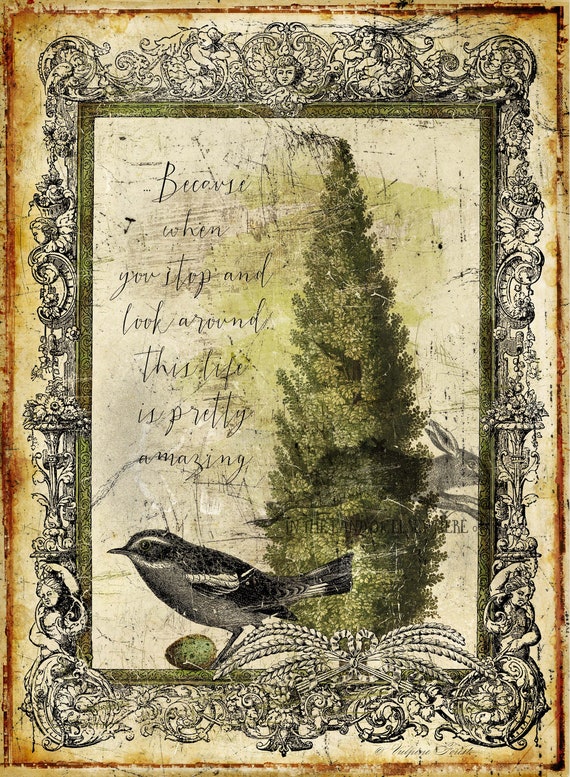 Because
when
you stop and
look around
this life
is pretty
amazing
IN THE LAND OF